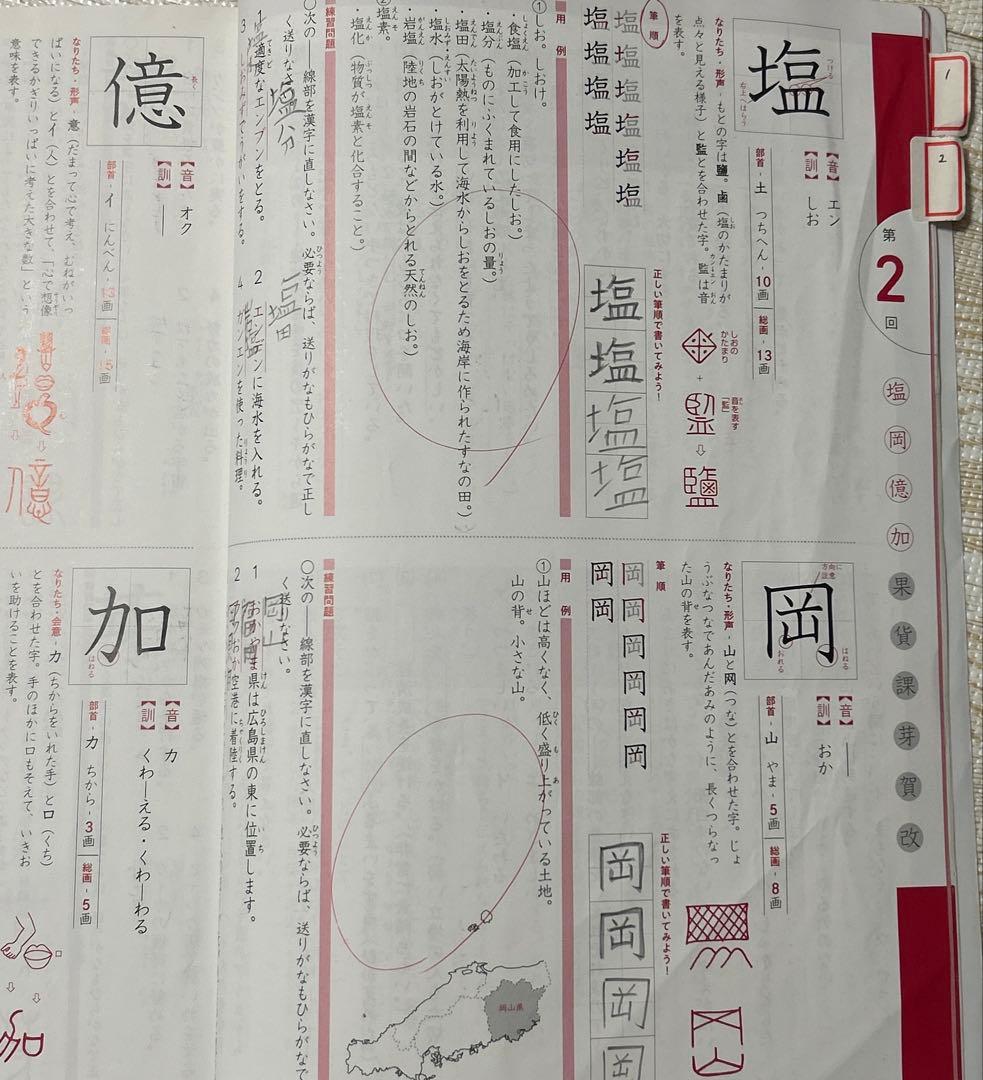 1
2
第2回
塩
岡
億
加
果
貨
課
芽
賀
改
塩
つける
右上へはらう
【音】エン
【訓】しお
部首-土 つちへん-10画 総画-13画
なりたち・形声-もとの字は鹽。鹵(塩のかたまりが
点々と見える様子)と監とを合わせた字。監は音
を表す。
しおのかたまり
+
音を表す「監」
筆順
塩塩塩塩塩
塩塩塩塩
正しい筆順で書いてみよう!
塩塩塩塩
用例
①しお。しおけ。
・食塩(加工して食用にしたしお。)
・塩分(ものにふくまれているしおの量。)
・塩田(太陽熱を利用して海水からしおをとるため海岸に作られたすなの田。)
・塩水(しおがとけている水。)
・岩塩(陸地の岩石の間などからとれる天然のしお。)
②塩素。
・塩化(物質が塩素と化合すること。)
練習問題
○次の――線部を漢字に直しなさい。必要ならば、送りがなもひらがなで正し
く送りなさい。
塩分
塩田
1 適度なエンブンをとる。
2 エンデンに海水を入れる。
3 しおみずでうがいをする。
4 ガンエンを使った料理。
岡
方向に注意
はねる
おれる
【音】――
【訓】おか
部首-山 やま-5画 総画-8画
なりたち・形声-山と网(つな)とを合わせた字。じょ
うぶなつなであんだあみのように、長くつらなっ
た山の背を表す。
筆順
岡岡岡岡岡
岡岡
正しい筆順で書いてみよう!
岡岡岡岡
用例
①山ほどは高くなく、低く盛り上がっている土地。
山の背。小さな山。
岡山県
練習問題
○次の――線部を漢字に直しなさい。必要ならば、送りがなもひらがなで
く送りなさい。
岡山
福岡
1 おかやま県は広島県の東に位置します。
2 ふくおか空港に着陸する。
億
長く
【音】オク
【訓】――
部首-イ にんべん-13画 総画-15画
なりたち・形声-意(だまって心で考え、むねがいっ
ぱいになる)とイ(人)とを合わせて、「心で想像
できるかぎりいっぱいに考えた大きな数」という
意味を表す。
加
はねる
【音】カ
【訓】くわ―える・くわ―わる
部首-力 ちから-3画 総画-5画
なりたち・会意-力(ちからをいれた手)と口(くち)
とを合わせた字。手のほかに口もそえて、いきお
いを助けることを表す。